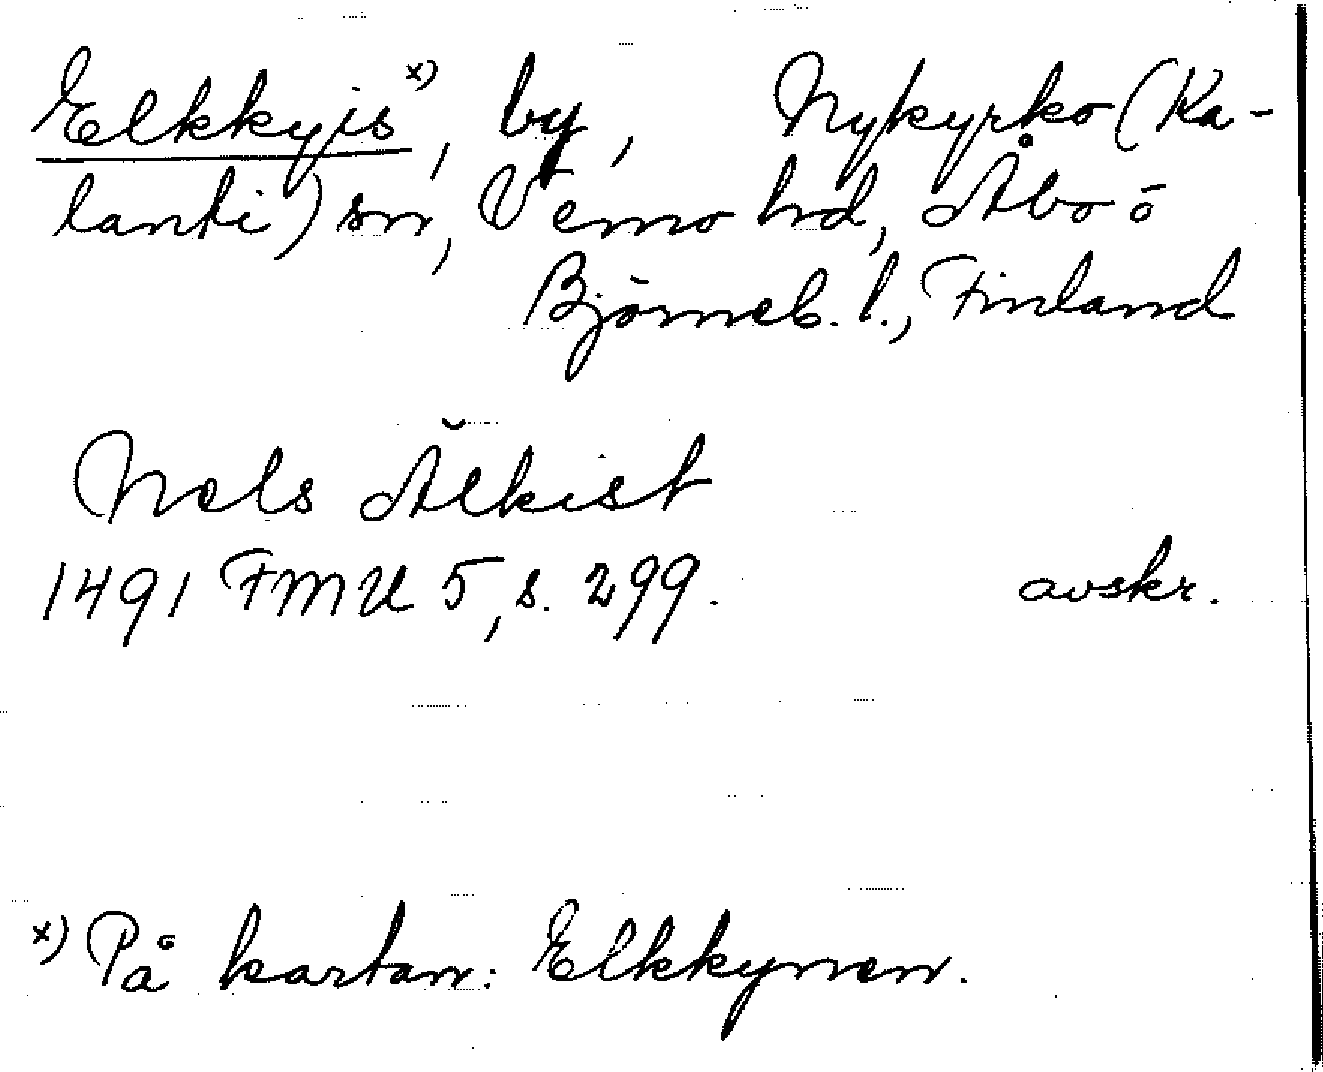 Elkkyis x), by, Nykyrko (Ka-
lanti) sn, Vemo hd, Åbo o
Björneb. l., Finland
Nels Ælkist
1491 FMU 5, s. 299. avskr.
x) På kartan: Elkkynen.